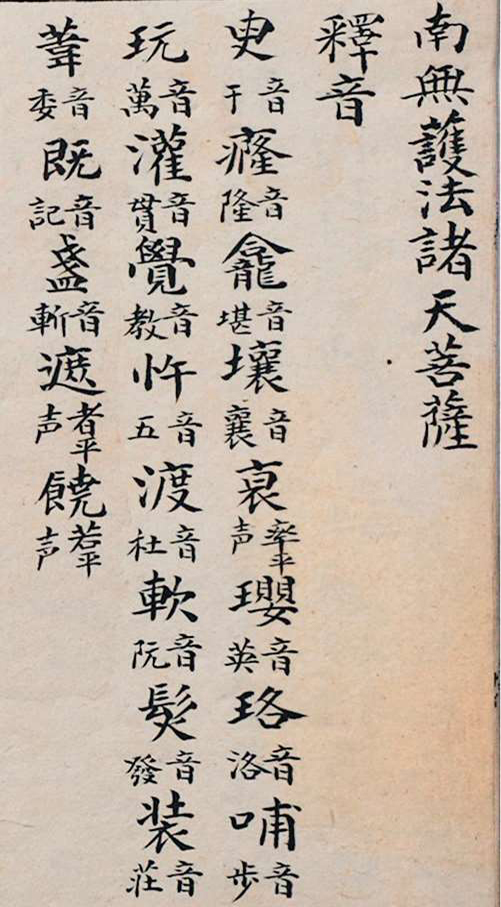 南無護法諸天菩薩
釋音
臾音于癃音隆龕音堪壤音襄衰率平声瓔音英珞音洛哺音步
玩音萬灌音貫覺音教忤音五渡音杜軟音阮髮音發装音荘
葦音委既音記盞音斬遮者平声饒若平声